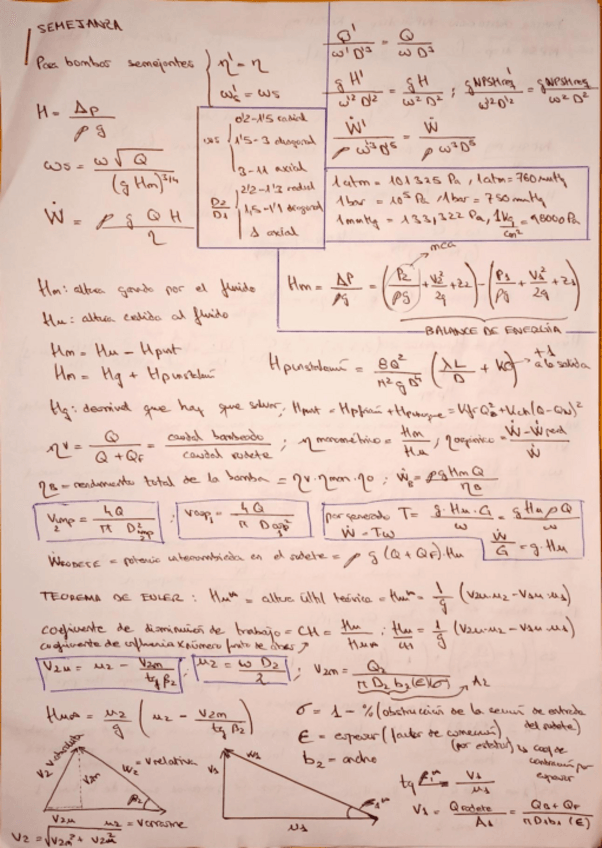 SEMEJANZA
Para bombas semejantes { η' = η
ω's = ωs
Q'/(ω' D'³) = Q/(ω D³)
g H'/(ω'² D'²) = g H/(ω² D²) ; g NPSHreq'/(ω'² D'²) = g NPSHreq/(ω² D²)
Ẇ'/(ρ ω'³ D'⁵) = Ẇ/(ρ ω³ D⁵)
H = Δp/(ρ g)
ωs = ω √Q/(g Hm)^3/4
Ẇ = ρ g Q H/η
ωs { 0'2-1'5 radial
1'5-3 diagonal
3-11 axial
D2/D1 { 2'2-1'3 radial
1,5-1'1 diagonal
1 axial
1 atm = 101325 Pa, 1 atm = 760 mmHg
1 bar = 10⁵ Pa, 1 bar = 750 mmHg
1 mmHg = 133,322 Pa, 1 kg/cm² = 98000 Pa
mca
Hm = ΔP/(ρg) = (P2/(ρg) + v2²/2g + z2) - (P1/(ρg) + v1²/2g + z1)
BALANCE DE ENERGÍA
Hm: altura ganada por el fluido
Hu: altura cedida al fluido
Hm = Hu - Hpint
Hm = Hg + Hpinstalación
Hpinstalación = 8Q²/(π² g D⁴) (λL/D + K) → +1 a la salida
Hg: desnivel que hay que salvar; Hpint = Hpfricción + Hpchoque = Kfr Q² + Kch(Q - QN)²
ηv = Q/(Q + QF) = caudal bombeado/caudal rodete ; η manométrico = Hm/Hu ; η orgánico = (Ẇ - Ẇ per)/Ẇ
ηB = rendimiento total de la bomba = ηv · ηman · ηo ; ẆB = ρ g Hm Q/ηB
V imp 2 = 4Q/(π D²imp) ; V asp 1 = 4Q/(π D asp²)
par generado T = g · Hu · G/ω = g Hu ρ Q/ω
Ẇ = Tω
Ẇ/G = g · Hu
ẆRODETE = potencia intercambiada en el rodete = ρ g (Q + QF) · Hu
TEOREMA DE EULER : Hu∞ = altura útil teórica = Hu∞ = 1/g (v2u · u2 - v1u · u1)
coeficiente de disminución de trabajo = CH = Hu/Hu∞ ; Hu/CH = 1/g (v2u · u2 - v1u · u1)
coeficiente de influencia x número finito de álabes
v2u = u2 - v2m/tg β2 ; u2 = ω D2/2 ; v2m = Q2/(π D2 b2 (ε) σ) → A2
Hu∞ = u2/g (u2 - v2m/tg β2)
σ = 1 - % (obstrucción de la sección de entrada del rodete)
ε = espesor (factor de corrección) (por estator) ↳ coef de contracción por espesor
b2 = ancho
V2 = V absoluta
W2 = V relativa
V2m
β2
V2u u2 = V arrastre
V2 = √(V2m² + V2u²)
V1
W1
β1
u1
tg β1 = V1/u1
V1 = Qrodete/A1 = (QB + QF)/(π D1 b1 (ε))